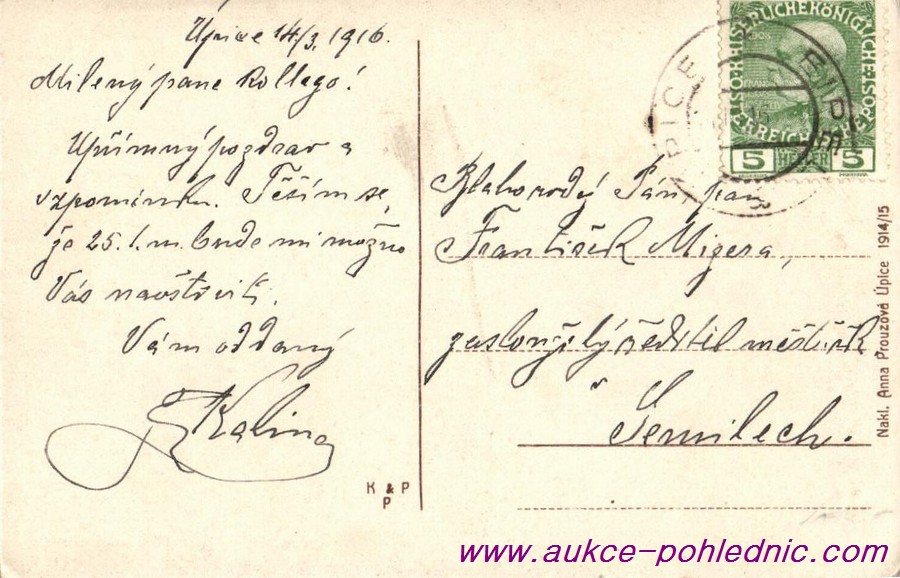 Úpice 14/3. 1916.
Milený pane kollego!
Upřímný pozdrav a
vzpomínku. Těším se,
že 25. t. m. bude mi možno
Vás navštíviti.
Vám oddaný
Kalina
K & P
P
ÖSTERREICHISCHE POST KAISERLICHEKÖNIGLICHE
1908
5 HELLER 5
ÚPICE
Blahorodý Pán pan
František Mizera,
zasloužilý ředitel měšťšk
v
Semilech.
Nakl. Anna Prouzová Úpice 1914/15
www.aukce-pohlednic.com